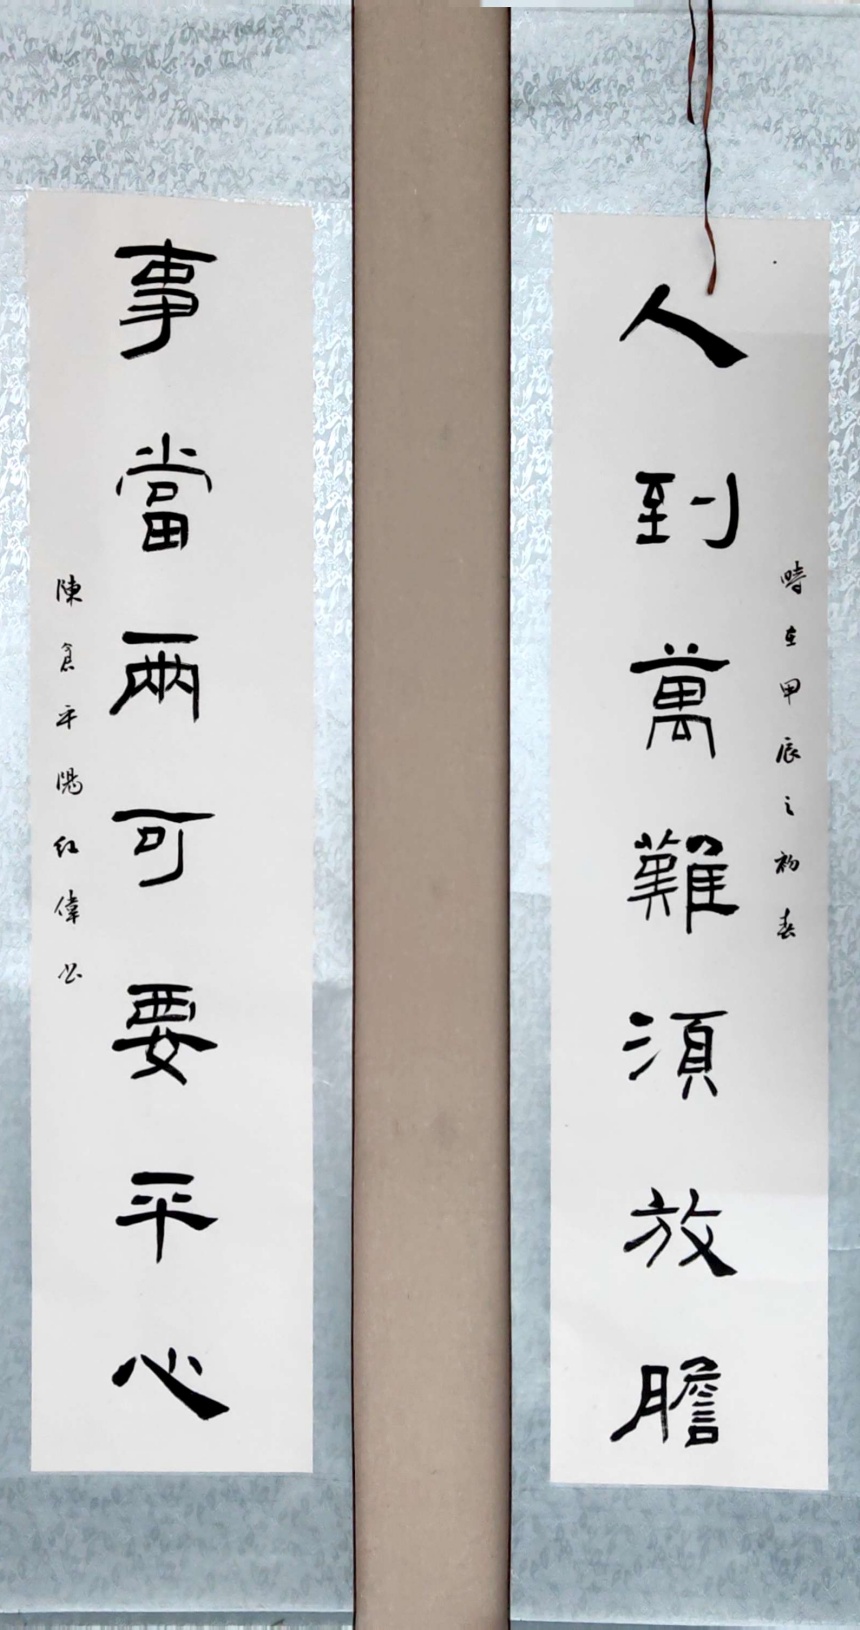 時在甲辰之初春
人到萬難須放膽
事當兩可要平心
陳倉平陽紅偉書